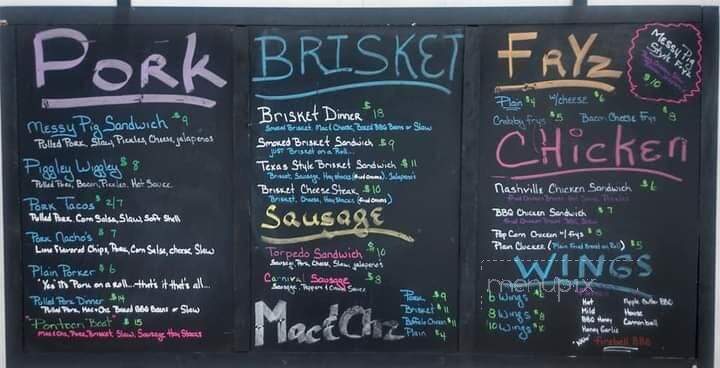 Pork
Messy Pig Sandwich $9
Pulled Pork, Slaw, Pickles, Cheese, jalapenos
Piggley Wiggley $8
Pulled Pork, Bacon, Pickles, Hot Sauce
Pork Tacos $2/7
Pulled Pork, Corn Salsa, Slaw, Soft Shell
Pork Nacho's $7
Lime Flavored Chips, Pork, Corn Salsa, cheese, Slaw
Plain Porker $6
"Yes it's Pork on a Roll...that's it that's all...
Pulled Pork Dinner $14
Pulled Pork, Mac+Chz Baked BBQ Beans or Slaw
"Ponteen Boat" $15
Mac+Chz, Pork, Brisket, Slaw, Sausage Hay Stacks
BRISKET
Brisket Dinner $18
Smoked Brisket, Mac & Cheese, Baked BBQ Beans or Slaw
Smoked Brisket Sandwich $9
Just Brisket on a Roll...
Texas Style Brisket Sandwich $11
Brisket, Sausage, Hay Stacks (fried onions), Jalapenos
Brisket Cheese Steak $10
Brisket, Cheese, Hay Stacks (fried onions)
Sausage
Torpedo Sandwich $10
Sausage, Pork, Cheese, Slaw, jalapenos
Carnival Sausage $8
Sausage, Peppers & Onion Sauce
Mac & Chz
Pork $9
Brisket $11
Buffalo Chicken $11
Plain $4
FRYz
Messy Pig
Style Fryz
$10
Plain $4 w/cheese $6
Crabby frys $5 Bacon Cheese Frys $8
Chicken
Nashville Chicken Sandwich $6
BBQ Chicken Sandwich $7
Pop Corn Chicken w/ frys $9
Plain Clucker (Plain Fried Breast on Roll) $5
WINGS
menupix
6 Wings
8 Wings $8
10 Wings $10
Hot Apple Butter BBQ
Mild House
BBQ Honey Cannonball
Honey Garlic
New Fireball BBQ